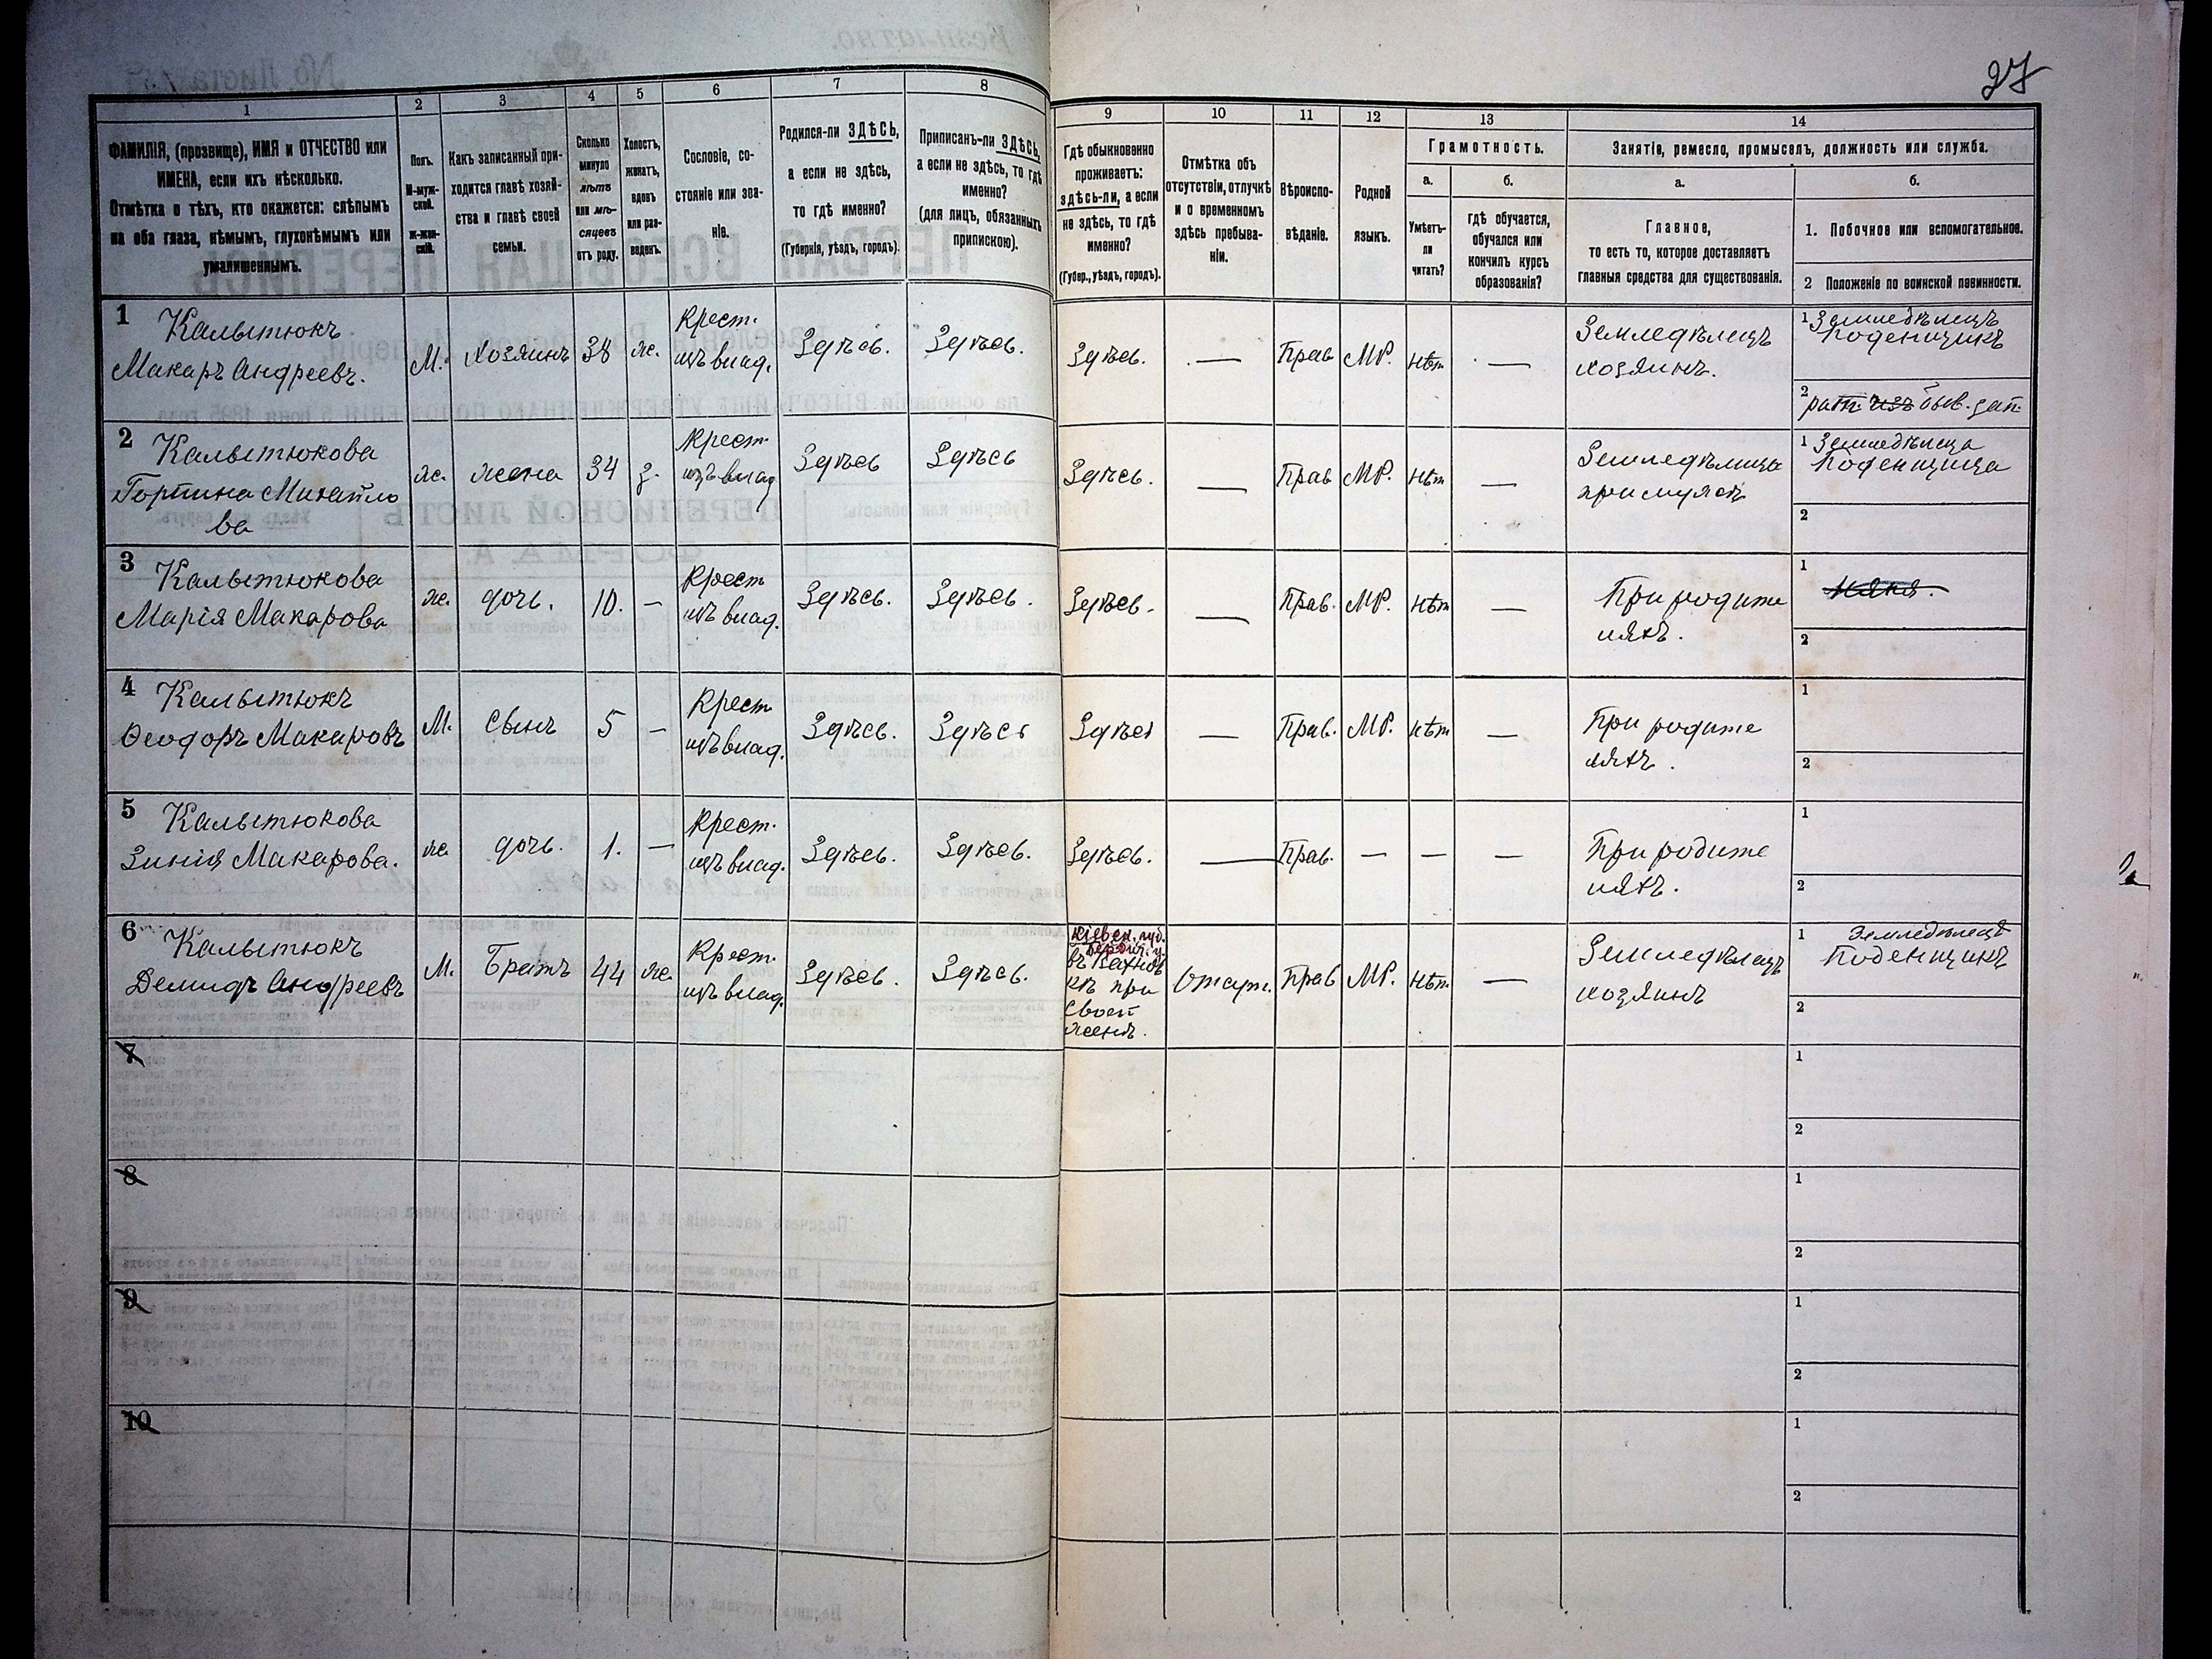 27
1
2
3
4
5
6
7
8
9
10
11
12
13
14
ФАМИЛІЯ, (прозвище), ИМЯ и ОТЧЕСТВО или
ИМЕНА, если ихъ нѣсколько.
Отмѣтка о тѣхъ, кто окажется: слѣпымъ
на оба глаза, нѣмымъ, глухонѣмымъ или
умалишеннымъ.
Полъ.
М-муж-
ской.
Ж-жен-
скій.
Какъ записанный при-
ходится главѣ хозяй-
ства и главѣ своей
семьи.
Сколько
минуло
лѣтъ
или мѣ-
сяцевъ
отъ роду.
Холостъ,
женатъ,
вдовъ
или раз-
веденъ.
Сословіе, со-
стояніе или зва-
ніе.
Родился-ли ЗДѢСЬ,
а если не здѣсь,
то гдѣ именно?
(Губернія, уѣздъ, городъ).
Приписанъ-ли ЗДѢСЬ,
а если не здѣсь, то гдѣ
именно?
(для лицъ, обязанныхъ
припискою).
Гдѣ обыкновенно
проживаетъ:
здѣсь-ли, а если
не здѣсь, то гдѣ
именно?
(Губер., уѣздъ, городъ).
Отмѣтка объ
отсутствіи, отлучкѣ
и о временномъ
здѣсь пребыва-
ніи.
Вѣроиспо-
вѣданіе.
Родной
языкъ.
Грамотность.
а.
Умѣетъ-
ли
читать?
б.
гдѣ обучается,
обучался или
кончилъ курсъ
образованія?
Занятіе, ремесло, промыселъ, должность или служба.
а.
Главное,
то есть то, которое доставляетъ
главныя средства для существованія.
б.
1. Побочное или вспомогательное.
2 Положеніе по воинской повинности.
1 Калытюкъ
Макаръ Андреевъ.
М.
Хозяинъ
38
ж.
Крест.
изъ влад.
Здѣсь.
Здѣсь.
Здѣсь.
—
Прав
МР.
нѣт
—
Земледѣлецъ
хозяинъ.
1 Земледѣлецъ
Поденщикъ
2 рат. изъ быв. зап.
2 Калытюкова
Горпина Михайло
ва
ж.
жена
34
з.
Крест.
изъ влад
Здѣсь
Здѣсь
Здѣсь.
—
Прав
МР.
нѣт
—
Земледѣлица
при мужѣ
1 Земледѣлица
Поденщица
2
3 Калытюкова
Марія Макарова
ж.
дочь.
10.
—
Крест
изъ влад.
Здѣсь.
Здѣсь.
Здѣсь.
—
Прав.
МР.
нѣт
—
При родите
ляхъ.
1 няня.
2
4 Калытюкъ
Ѳеодоръ Макаровъ
М.
Сынъ
5
—
Крест
изъ влад.
Здѣсь.
Здѣсь
Здѣсь
—
Прав.
МР.
нѣт
—
При родите
ляхъ.
1
2
5 Калытюкова
Зинія Макарова.
ж.
дочь.
1.
—
Крест.
изъ влад.
Здѣсь.
Здѣсь.
Здѣсь.
—
Прав.
—
—
—
При родите
ляхъ.
1
2
6 Калытюкъ
Демидъ Андреевъ
М.
Братъ
44
ж.
Крест.
изъ влад.
Здѣсь.
Здѣсь.
Кіевск. губ.
Бердич. у.
въ Вахнов
кѣ при
своей
женѣ.
Отсут.
Прав
МР.
нѣт.
—
Земледѣлецъ
хозяинъ
1 Земледѣлецъ
Поденщикъ
2
7
1
2
8
1
2
9
1
2
10
1
2